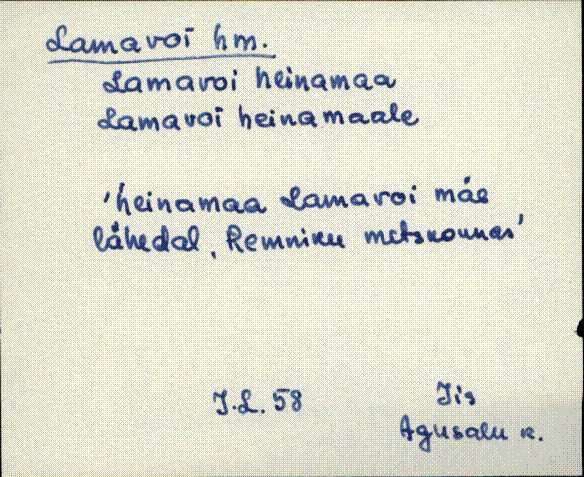 Lamavoi hm.
Lamavoi heinamaa
Lamavoi heinamaale
'heinamaa Lamavoi mäe
lähedal, Remniku metskonnas'
J.L. 58
Jis
Agusalu k.